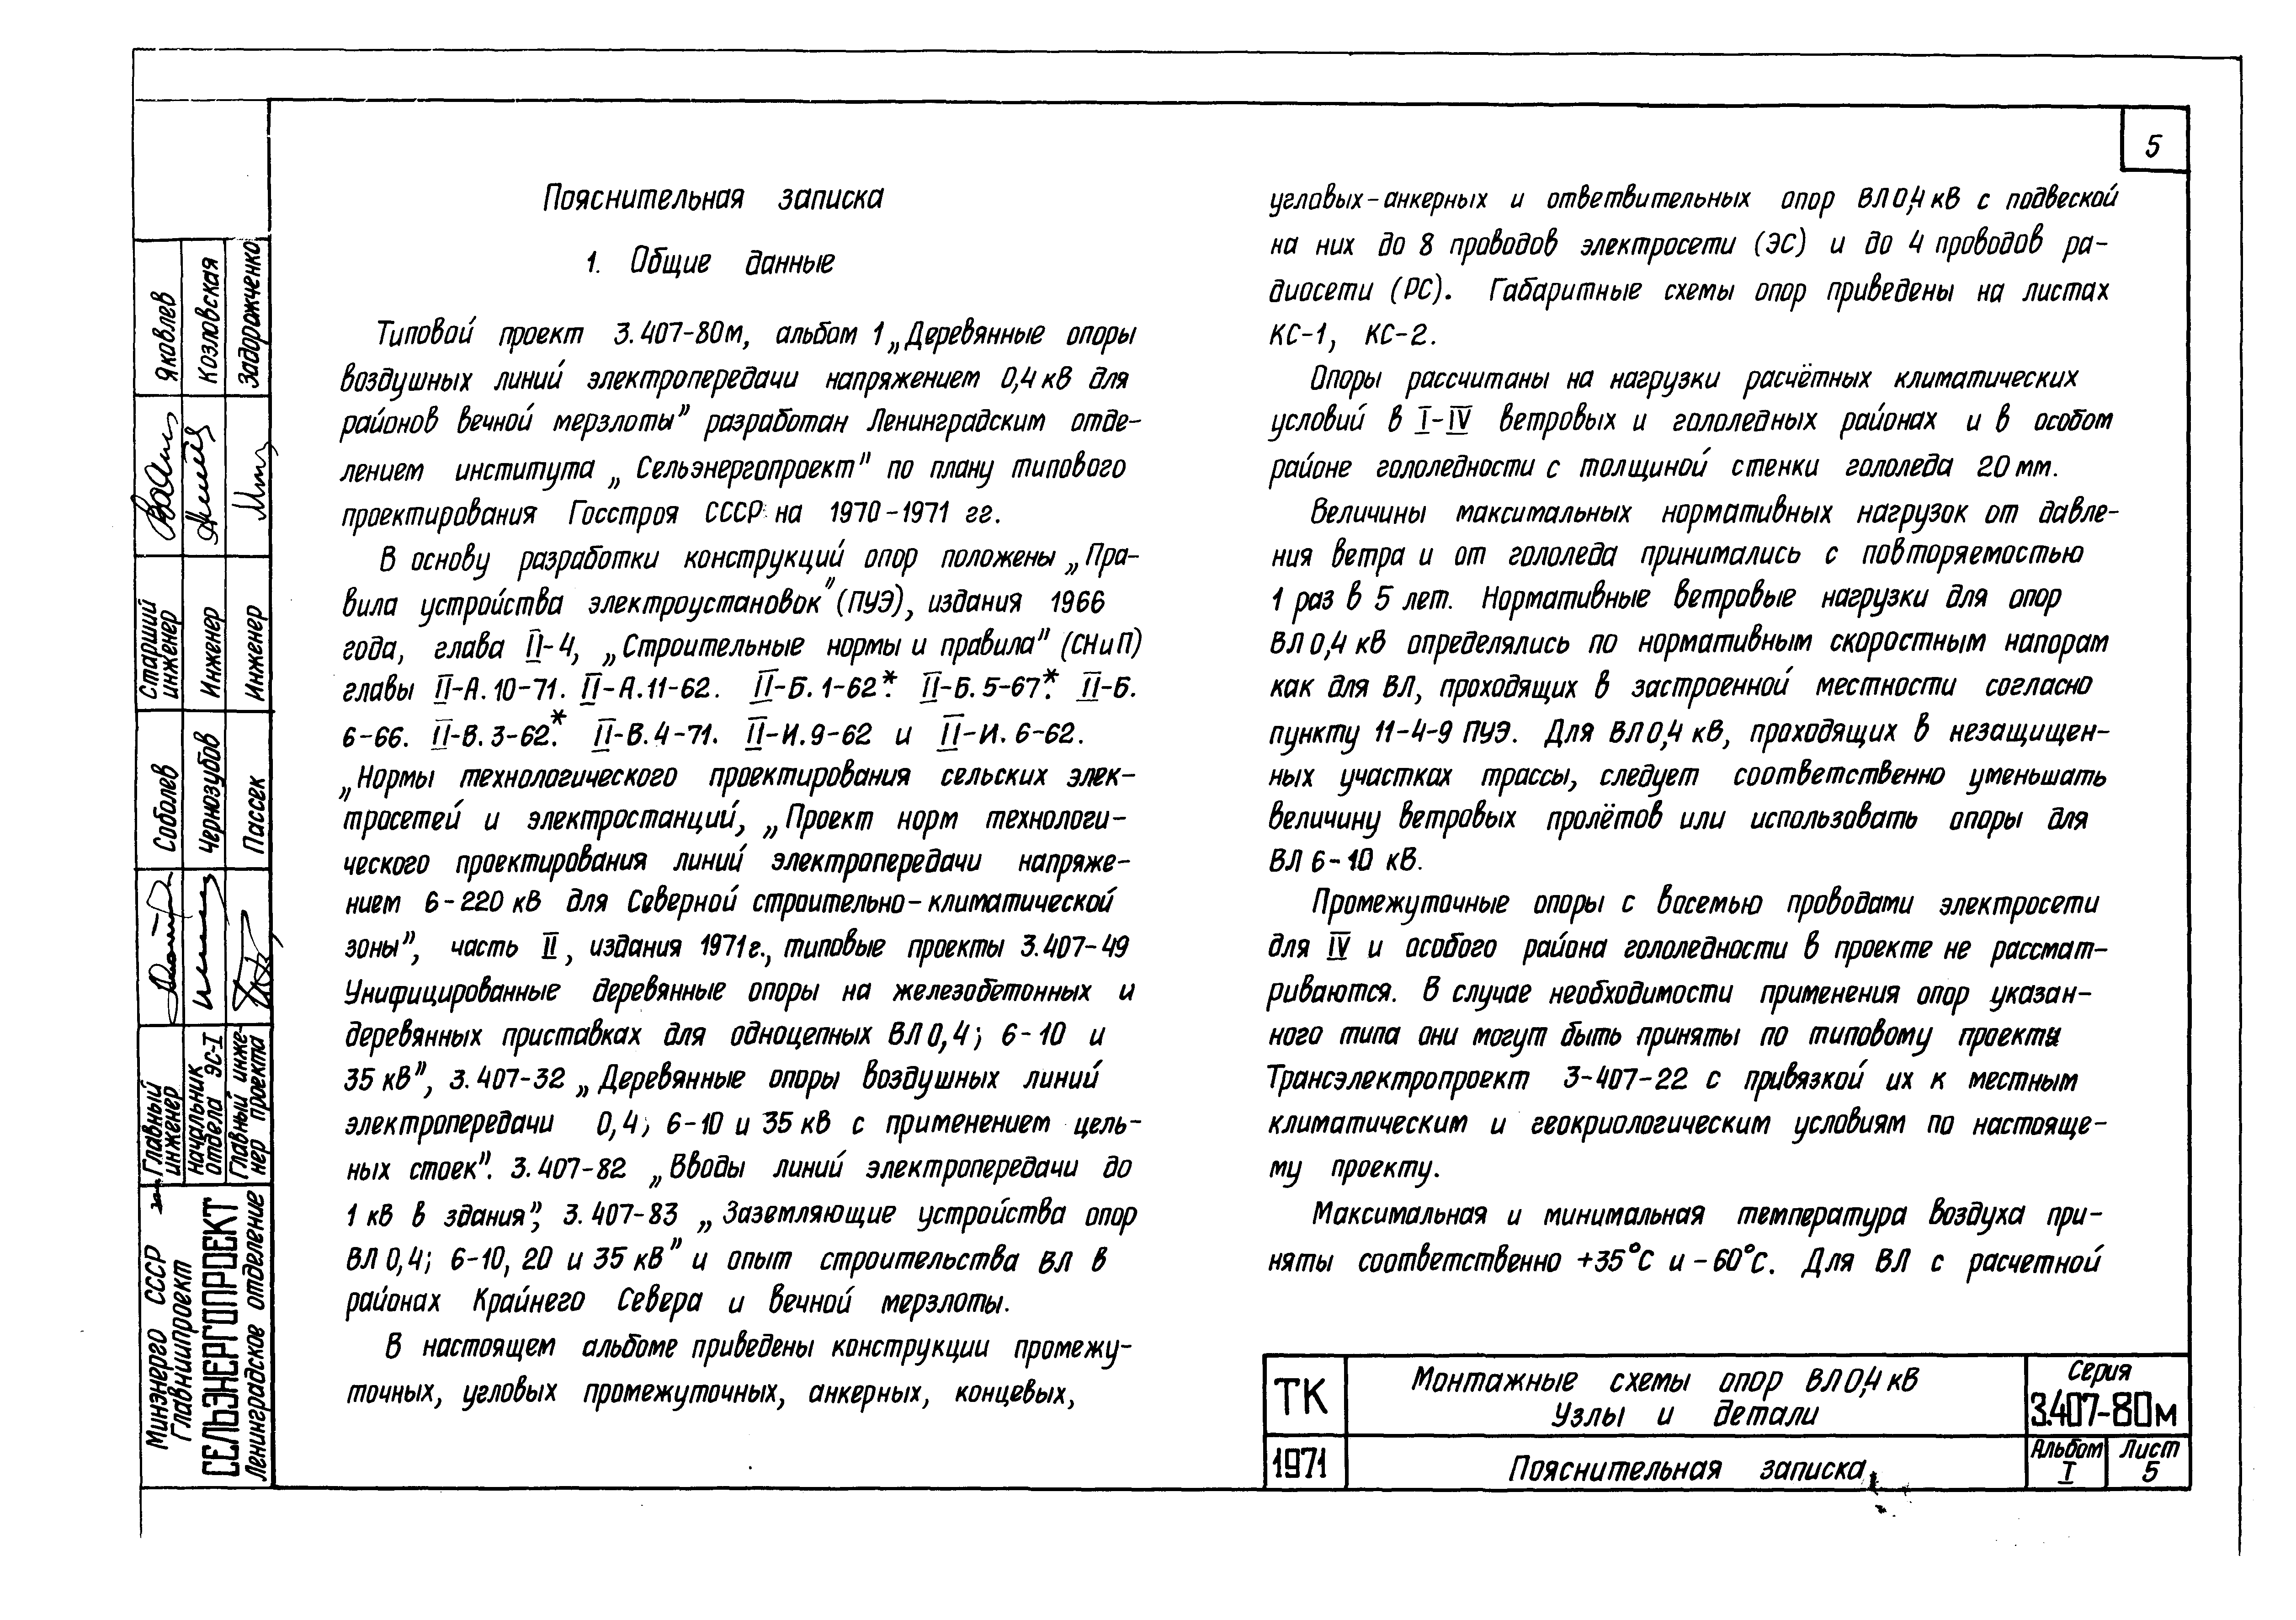 5
Пояснительная записка
1. Общие данные
Типовой проект 3.407-80м, альбом 1 „Деревянные опоры
воздушных линий электропередачи напряжением 0,4 кВ для
районов вечной мерзлоты" разработан Ленинградским отде-
лением института „Сельэнергопроект" по плану типового
проектирования Госстроя СССР на 1970-1971 гг.
В основу разработки конструкций опор положены „Пра-
вила устройства электроустановок" (ПУЭ), издания 1966
года, глава II-4, „Строительные нормы и правила" (СНиП)
главы II-А.10-71. II-А.11-62. II-Б.1-62*. II-Б.5-67*. II-Б.
6-66. II-В.3-62*. II-В.4-71. II-И.9-62 и II-И.6-62.
„Нормы технологического проектирования сельских элек-
тросетей и электростанций, „Проект норм технологи-
ческого проектирования линий электропередачи напряже-
нием 6-220 кВ для Северной строительно-климатической
зоны", часть II, издания 1971г., типовые проекты 3.407-49
Унифицированные деревянные опоры на железобетонных и
деревянных приставках для одноцепных ВЛ 0,4; 6-10 и
35 кВ", 3.407-32 „Деревянные опоры воздушных линий
электропередачи 0,4; 6-10 и 35 кВ с применением цель-
ных стоек". 3.407-82 „Вводы линий электропередачи до
1 кВ в здания", 3.407-83 „Заземляющие устройства опор
ВЛ 0,4; 6-10, 20 и 35 кВ" и опыт строительства ВЛ в
районах Крайнего Севера и вечной мерзлоты.
В настоящем альбоме приведены конструкции промежу-
точных, угловых промежуточных, анкерных, концевых,
угловых-анкерных и ответвительных опор ВЛ 0,4 кВ с подвеской
на них до 8 проводов электросети (ЭС) и до 4 проводов ра-
диосети (РС). Габаритные схемы опор приведены на листах
КС-1, КС-2.
Опоры рассчитаны на нагрузки расчётных климатических
условий в I-IV ветровых и гололедных районах и в особом
районе гололедности с толщиной стенки гололеда 20 мм.
Величины максимальных нормативных нагрузок от давле-
ния ветра и от гололеда принимались с повторяемостью
1 раз в 5 лет. Нормативные ветровые нагрузки для опор
ВЛ 0,4 кВ определялись по нормативным скоростным напорам
как для ВЛ, проходящих в застроенной местности согласно
пункту 11-4-9 ПУЭ. Для ВЛ 0,4 кВ, проходящих в незащищен-
ных участках трассы, следует соответственно уменьшать
величину ветровых пролётов или использовать опоры для
ВЛ 6-10 кВ.
Промежуточные опоры с восемью проводами электросети
для IV и особого района гололедности в проекте не рассмат-
риваются. В случае необходимости применения опор указан-
ного типа они могут быть приняты по типовому проекту
Трансэлектропроект 3-407-22 с привязкой их к местным
климатическим и геокриологическим условиям по настояще-
му проекту.
Максимальная и минимальная температура воздуха при-
няты соответственно +35°С и -60°С. Для ВЛ с расчетной
ТК
1971
Монтажные схемы опор ВЛ 0,4 кВ
Узлы и детали
Пояснительная записка
Серия
3.407-80м
Альбом
I
Лист
5
Минэнерго СССР
Главниипроект
СЕЛЬЭНЕРГОПРОЕКТ
Ленинградское отделение
Главный
инженер
Начальник
отдела ЭС-I
Главный инже-
нер проекта
Соболев
Чернозубов
Пассек
Старший
инженер
Инженер
Инженер
Яковлев
Козловская
Задорожченко